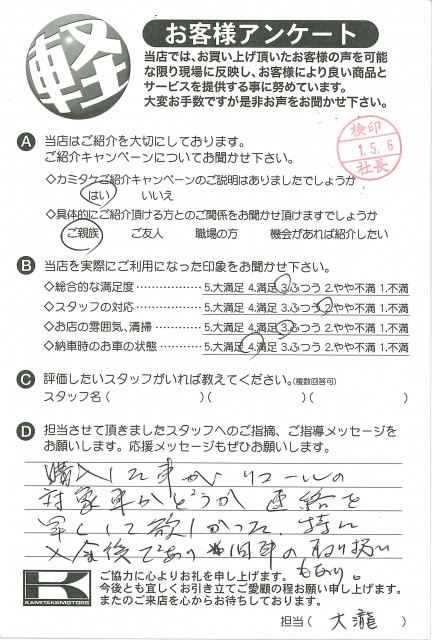 軽
お客様アンケート
当店では、お買い上げ頂いたお客様の声を可能
な限り現場に反映し、お客様により良い商品と
サービスを提供する事に努めています。
大変お手数ですが是非お声をお聞かせ下さい。
検印
1.5.6
社長
A 当店はご紹介を大切にしております。
ご紹介キャンペーンについてお聞かせ下さい。
◇カミタケご紹介キャンペーンのご説明はありましたでしょうか
はい いいえ
◇具体的にご紹介頂ける方とのご関係をお聞かせ頂けますでしょうか
ご親族 ご友人 職場の方 機会があれば紹介したい
B 当店を実際にご利用になった印象をお聞かせ下さい。
◇総合的な満足度 5.大満足 4.満足 3.ふつう 2.やや不満 1.不満
◇スタッフの対応 5.大満足 4.満足 3.ふつう 2.やや不満 1.不満
◇お店の雰囲気、清掃 5.大満足 4.満足 3.ふつう 2.やや不満 1.不満
◇納車時のお車の状態 5.大満足 4.満足 3.ふつう 2.やや不満 1.不満
C 評価したいスタッフがいれば教えてください。(複数回答可)
スタッフ名( )( )( )
D 担当させて頂きましたスタッフへのご指摘、ご指導メッセージを
お願いします。応援メッセージもぜひお願いします。
購入した車がリコールの
対象車かどうか連絡を
早くして欲しかった。特に
入金後であり 旧車の取り扱い
もあり。
K
KAMITAKE MOTORS
ご協力に心よりお礼を申し上げます。
今後とも宜しくお引き立てご愛顧の程お願い申し上げます。
またのご来店を心からお待ちしております。
担当( 大瀧 )